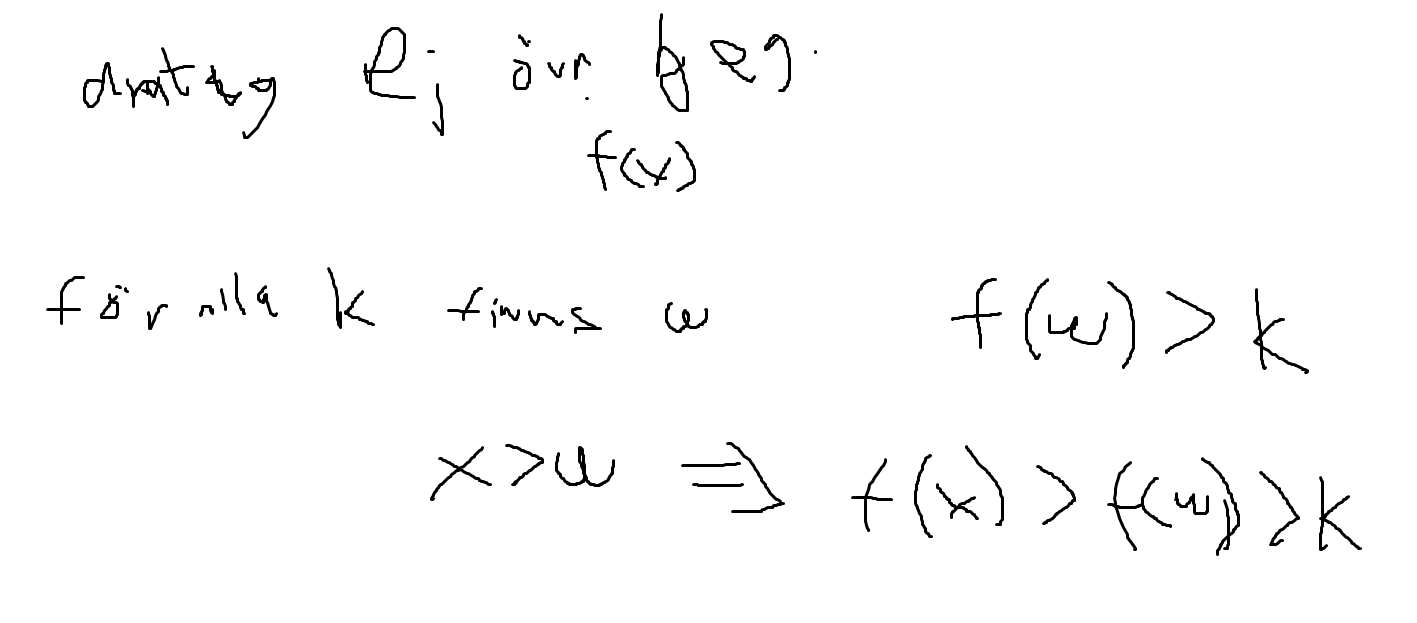 antag Ej övr. beg.
f(x)
för alla k finns w f(w) > k
x > w ⇒ f(x) > f(w) > k